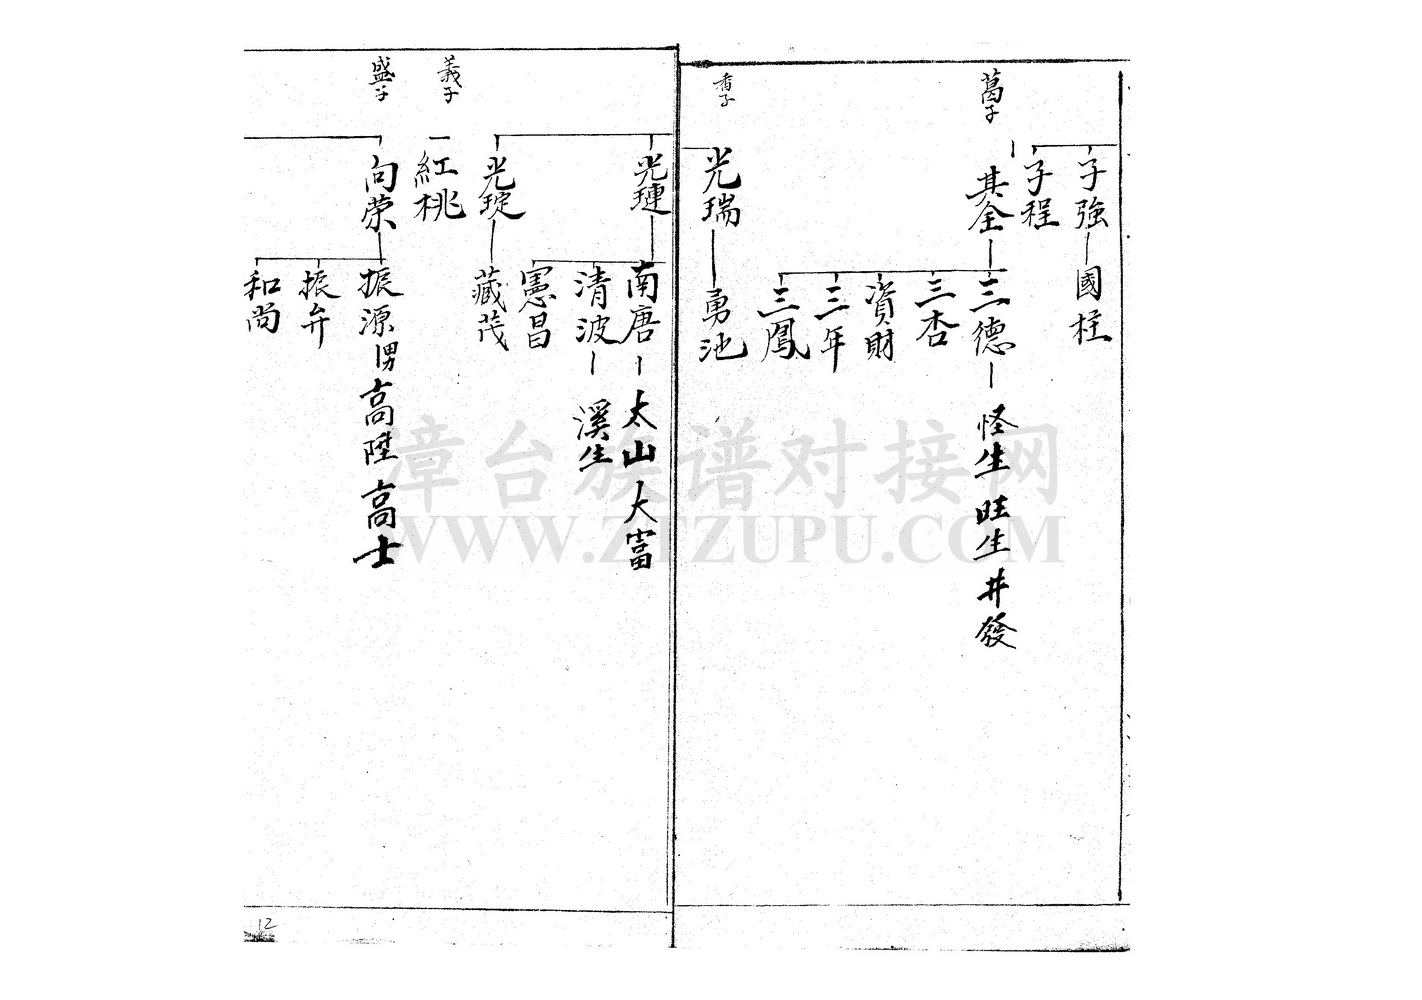 子強 國柱
子程
葛子
其全 三德 怪生 旺生 井發
三杏
資財
三年
三鳳
香子
光瑞 勇池
光璉 南唐 太山 大富
清波 溪生
憲昌
光琔 藏茂
義子
紅桃
盛子
向荣 振源 男 高陞 高士
振弁
和尚
12
漳台族谱对接网
WWW.ZTZUPU.COM